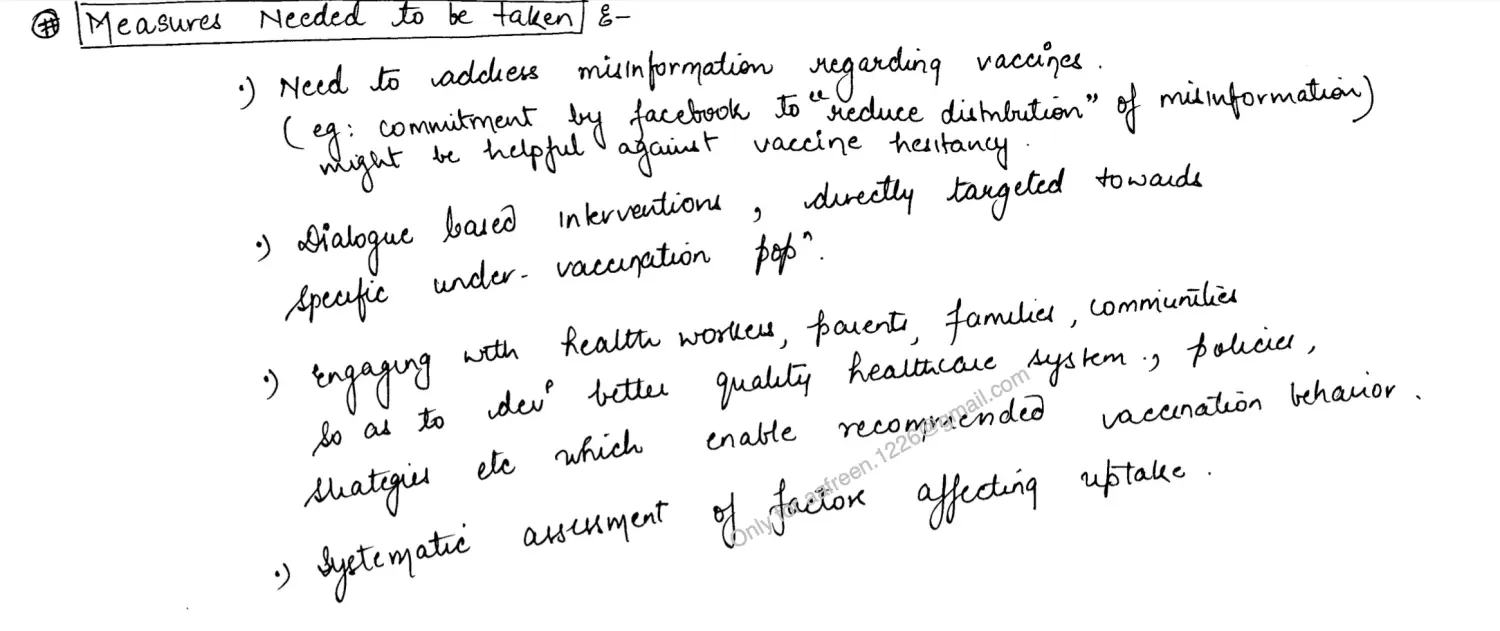 # Measures Needed to be taken :-
·) Need to address misinformation regarding vaccines.
(eg: commitment by facebook to "reduce distribution" of misinformation)
might be helpful against vaccine hesitancy.
·) Dialogue based interventions, directly targeted towards
specific under-vaccination popⁿ.
·) Engaging with health workers, parents, families, communities
so as to devᵖ better quality healthcare system, policies,
strategies etc which enable recommended vaccination behavior.
·) Systematic assessment of factors affecting uptake.
Only for aafreen.1226@gmail.com